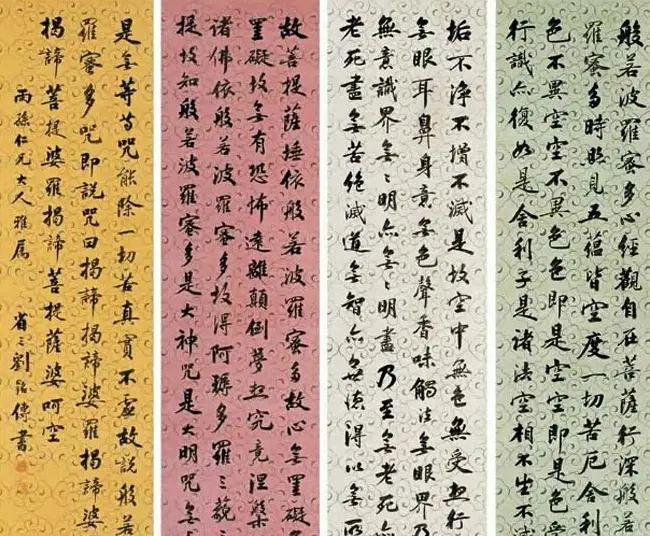 般若波羅蜜多心經觀自在菩薩行深般若
羅蜜多時照見五蘊皆空度一切苦厄舍利
色不異空空不異色色即是空空即是色受
行識亦復如是舍利子是諸法空相不生不滅
垢不淨不增不減是故空中無色無受想行
無眼耳鼻身意無色聲香味觸法無眼界乃
無意識界無〻明亦無〻明盡乃至無老死亦
老死盡無苦集滅道無智亦無得以無所
故菩提薩埵依般若波羅蜜多故心無罣礙
罣礙故無有恐怖遠離顛倒夢想究竟涅槃
諸佛依般若波羅蜜多故得阿耨多羅三藐三
提故知般若波羅蜜多是大神咒是大明咒無
是無等等咒能除一切苦真實不虛故說般若
羅蜜多咒即說咒曰揭諦揭諦婆羅揭諦婆
揭諦菩提婆羅揭諦菩提薩婆呵空
丙孫仁兄大人雅屬
省三劉銘傳書